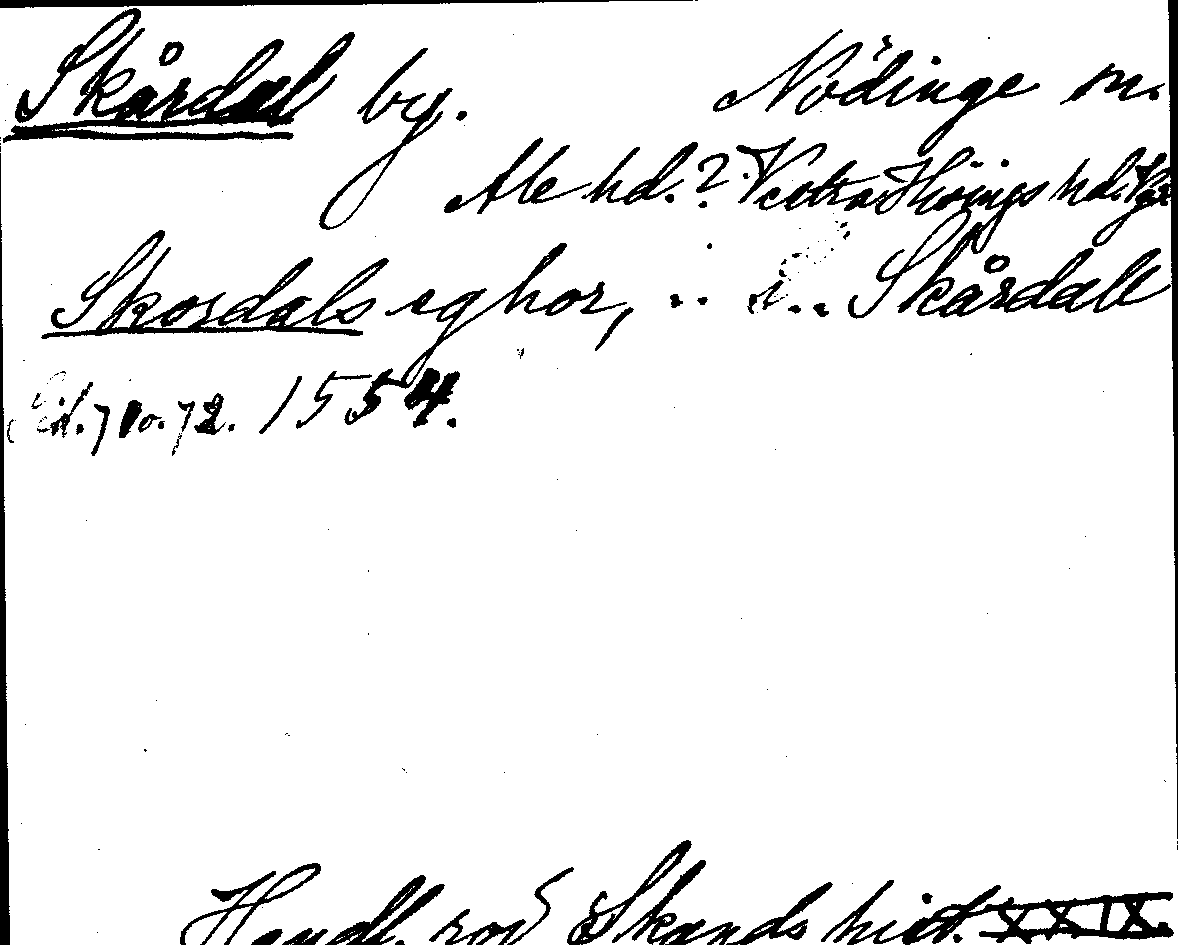 Skårdal by. Nödinge sn.
Ale hd.? Vestra Hisings hd.
Skordals eghor, .. i .. Skårdall
Sid. 71 o. 72. 1554.
Handl. rör Skands hist. XXIX.